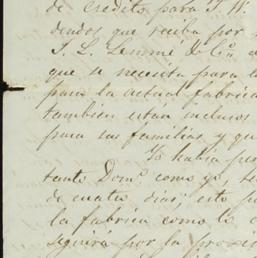 de credito para J. W.
deudos que reciba por
J. L. Lemmé & Cia.
que se necesita para l
para la actual fabrica
tambien estan inclusos
para sus familias, y qu
Yo habia
tanto Domo como yo, 
de cuatro dias; esto
la fabrica como lo
seguira por la